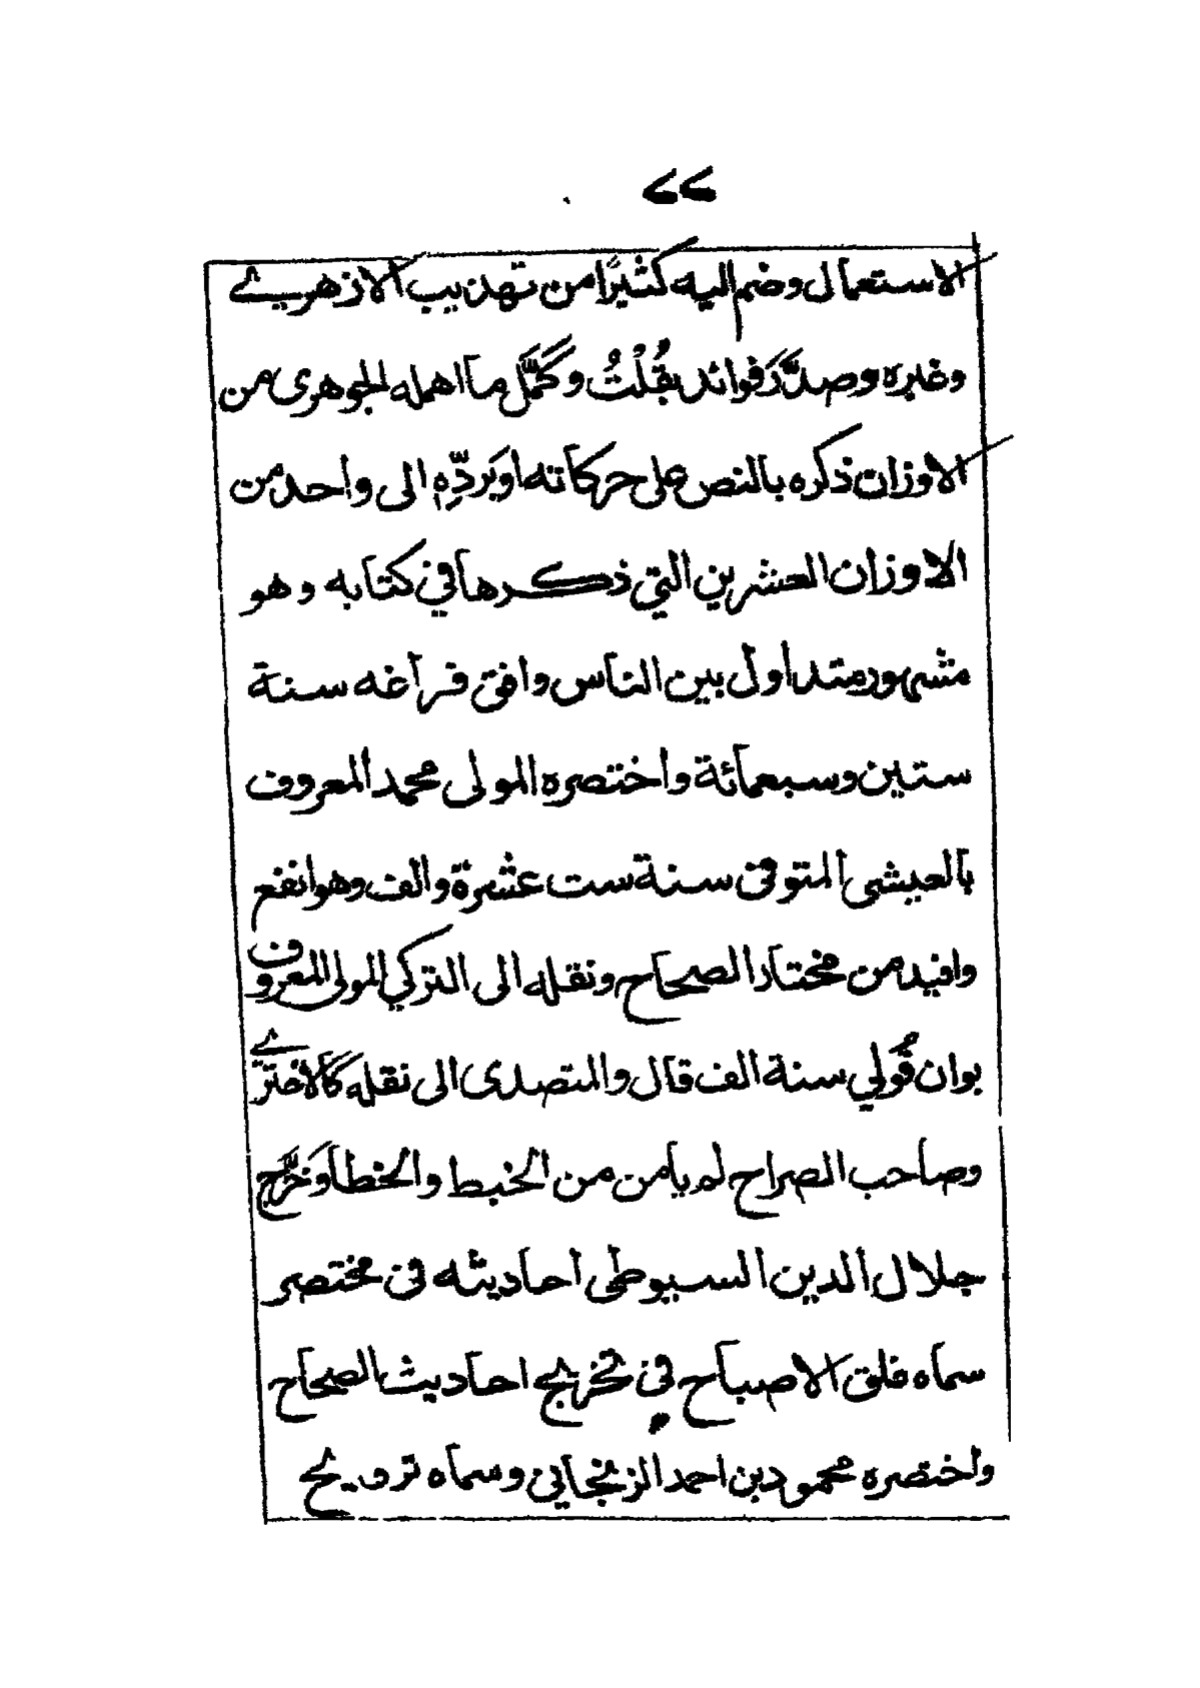 ٧٧
الاستعمال وضم اليه كثيرًا من تهذيب الازهري
وغيره وصدَّرَ فوائد بقُلْتُ وكَمَّل ما اهمله الجوهرى من
الاوزان ذكره بالنص على حركاته اوَيردِّه الى واحد من
الاوزان العشرين التي ذكرها في كتابه وهو
مشهور متداول بين الناس وافق فراغه سنة
ستين وسبعمائة واختصره المولى محمد المعروف
بالعيشى المتوفى سنة ست عشرة والف وهو انفع
وافيد من مختار الصحاح ونقله الى التركي المولى المعروف
بوان قُولي سنة الف قال والمتصدى الى نقله كالاخترى
وصاحب الصراح لم يأمن من الخبط والخطا وَخَرَّج
جلال الدين السيوطى احاديثه فى مختصر
سماه فلق الاصباح في تخريج احاديث الصحاح
واختصره محمود بن احمد الزنجاني وسماه ترويح